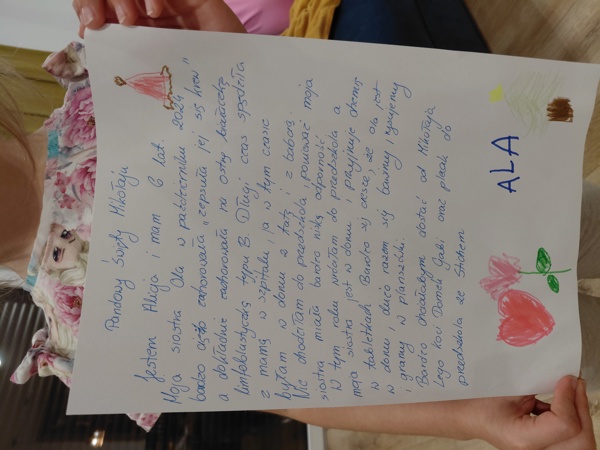 Pandowy Święty Mikołaju
Jestem Alicja i mam 6 lat.
Moja siostra Ola w październiku 2024
bardzo ciężko zachorowała, "zepsuła jej się krew"
a dokładnie zachorowała na ostrą białaczkę
limfoblastyczną typu B. Długi czas spędziła
z mamą w szpitalu, ja w tym czasie
byłam w domu z tatą i z babcią.
Nie chodziłam do przedszkola, ponieważ moja
siostra miała bardzo niską odporność.
W tym roku wróciłam do przedszkola a
moja siostra jest w domu i przyjmuje chemię
w tabletkach. Bardzo się cieszę, że Ola jest
w domu, dużo razem się bawimy, rysujemy
i gramy w planszówki.
Bardzo chciałabym dostać od Mikołaja
Lego Koci Domek Gabi oraz plecak do
przedszkola ze Stichem
ALA